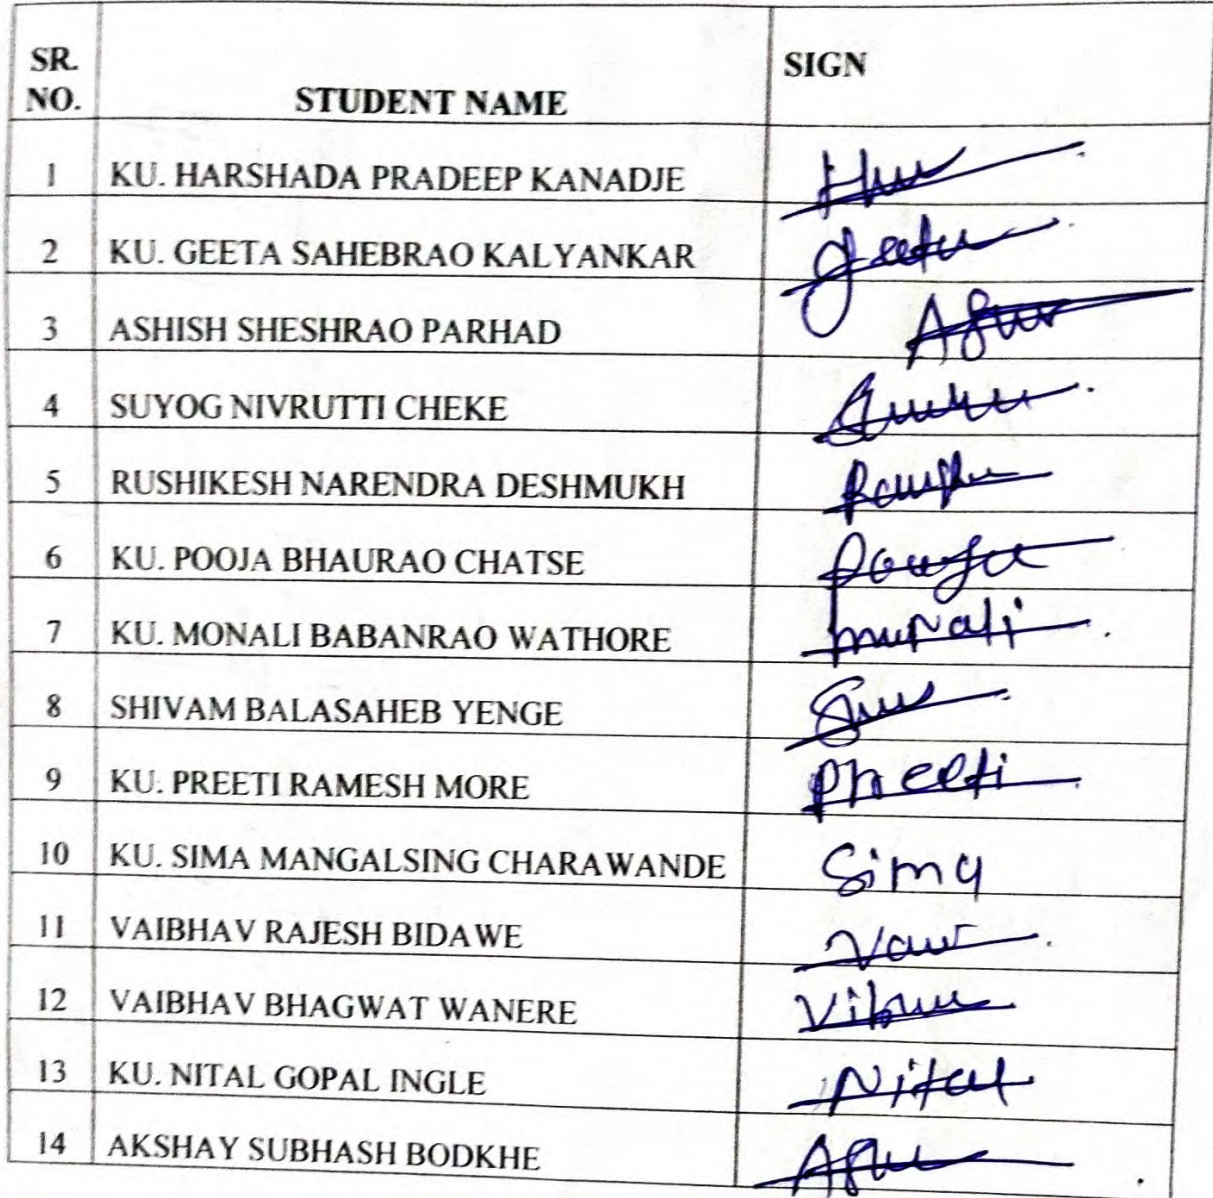 SR. NO. STUDENT NAME SIGN
1 KU. HARSHADA PRADEEP KANADJE
2 KU. GEETA SAHEBRAO KALYANKAR Geeta
3 ASHISH SHESHRAO PARHAD
4 SUYOG NIVRUTTI CHEKE
5 RUSHIKESH NARENDRA DESHMUKH
6 KU. POOJA BHAURAO CHATSE
7 KU. MONALI BABANRAO WATHORE
8 SHIVAM BALASAHEB YENGE
9 KU. PREETI RAMESH MORE Preeti
10 KU. SIMA MANGALSING CHARAWANDE Sima
11 VAIBHAV RAJESH BIDAWE
12 VAIBHAV BHAGWAT WANERE
13 KU. NITAL GOPAL INGLE Nital
14 AKSHAY SUBHASH BODKHE